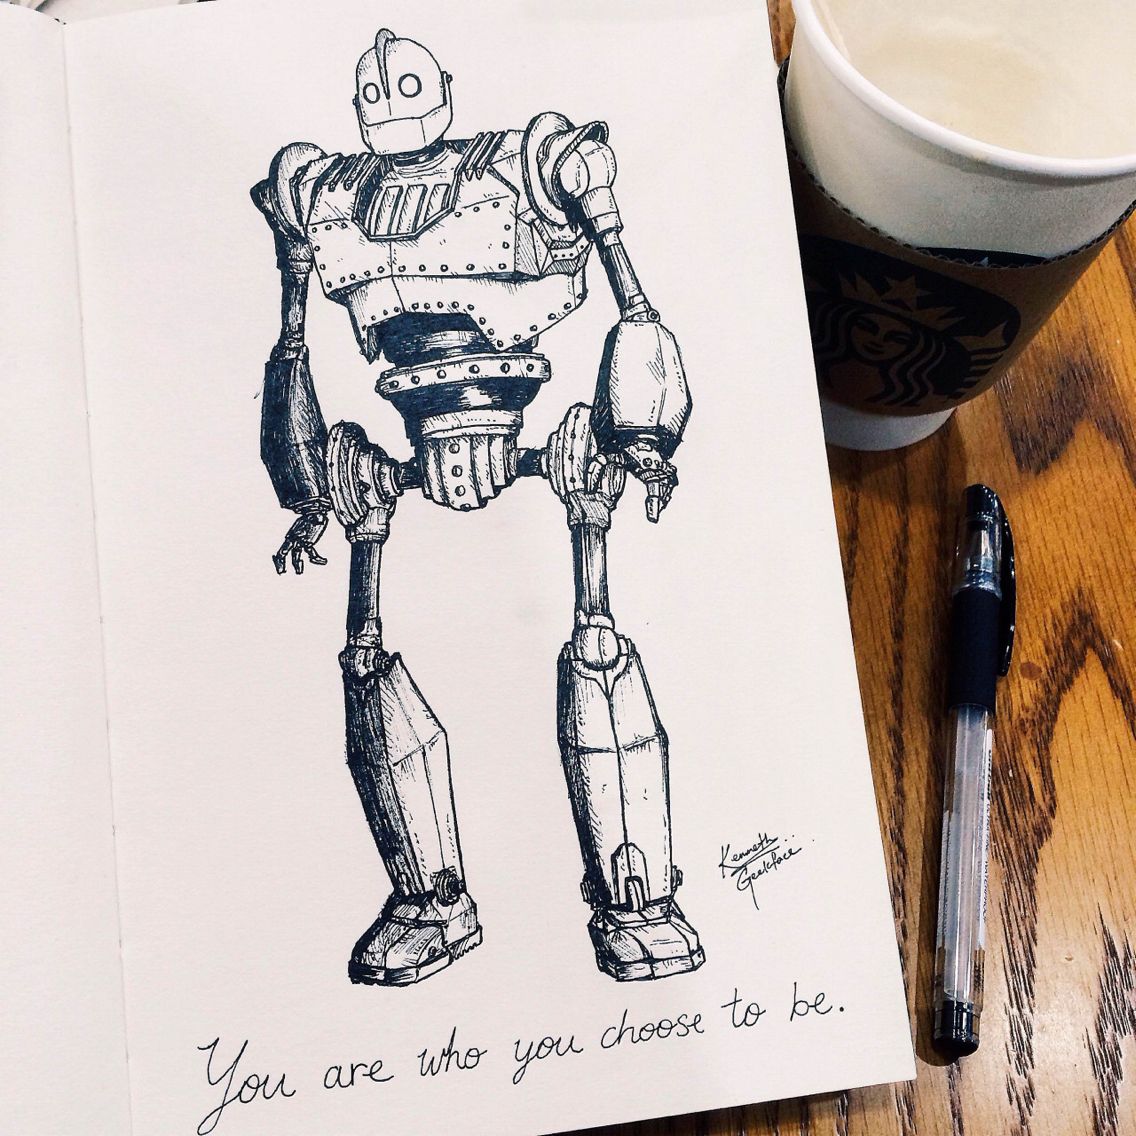 Kenneth
Geekface
You are who you choose to be.